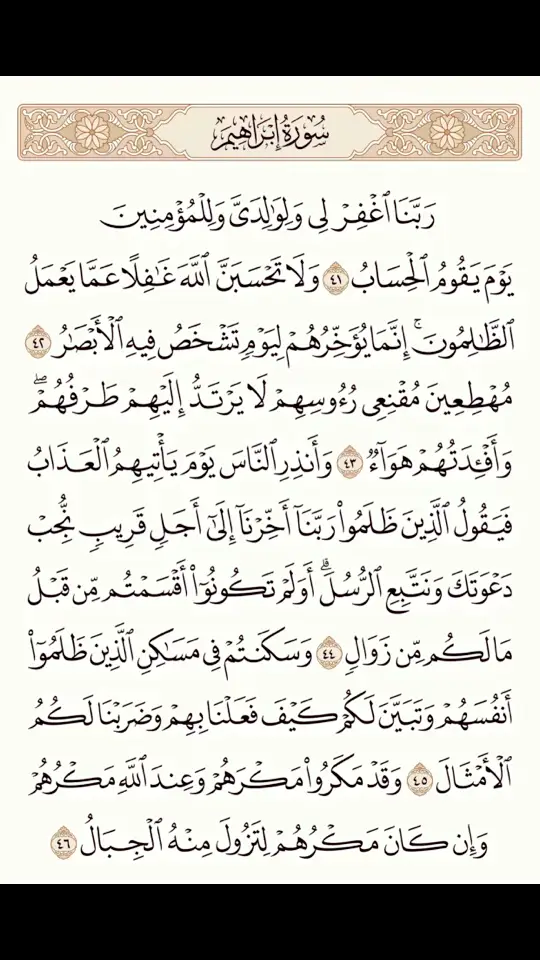 سُورَةُ إِبْرَاهِيمَ
رَبَّنَا ٱغْفِرْ لِي وَلِوَٰلِدَيَّ وَلِلْمُؤْمِنِينَ
يَوْمَ يَقُومُ ٱلْحِسَابُ ٤١ وَلَا تَحْسَبَنَّ ٱللَّهَ غَٰفِلًا عَمَّا يَعْمَلُ
ٱلظَّٰلِمُونَۚ إِنَّمَا يُؤَخِّرُهُمْ لِيَوْمٍ تَشْخَصُ فِيهِ ٱلْأَبْصَٰرُ ٤٢
مُهْطِعِينَ مُقْنِعِي رُءُوسِهِمْ لَا يَرْتَدُّ إِلَيْهِمْ طَرْفُهُمْۖ
وَأَفْـِٔدَتُهُمْ هَوَآءٌ ٤٣ وَأَنذِرِ ٱلنَّاسَ يَوْمَ يَأْتِيهِمُ ٱلْعَذَابُ
فَيَقُولُ ٱلَّذِينَ ظَلَمُوا۟ رَبَّنَآ أَخِّرْنَآ إِلَىٰٓ أَجَلٍ قَرِيبٍ نُّجِبْ
دَعْوَتَكَ وَنَتَّبِعِ ٱلرُّسُلَۗ أَوَلَمْ تَكُونُوٓا۟ أَقْسَمْتُم مِّن قَبْلُ
مَا لَكُم مِّن زَوَالٍ ٤٤ وَسَكَنتُمْ فِي مَسَٰكِنِ ٱلَّذِينَ ظَلَمُوٓا۟
أَنفُسَهُمْ وَتَبَيَّنَ لَكُمْ كَيْفَ فَعَلْنَا بِهِمْ وَضَرَبْنَا لَكُمُ
ٱلْأَمْثَالَ ٤٥ وَقَدْ مَكَرُوا۟ مَكْرَهُمْ وَعِندَ ٱللَّهِ مَكْرُهُمْ
وَإِن كَانَ مَكْرُهُمْ لِتَزُولَ مِنْهُ ٱلْجِبَالُ ٤٦